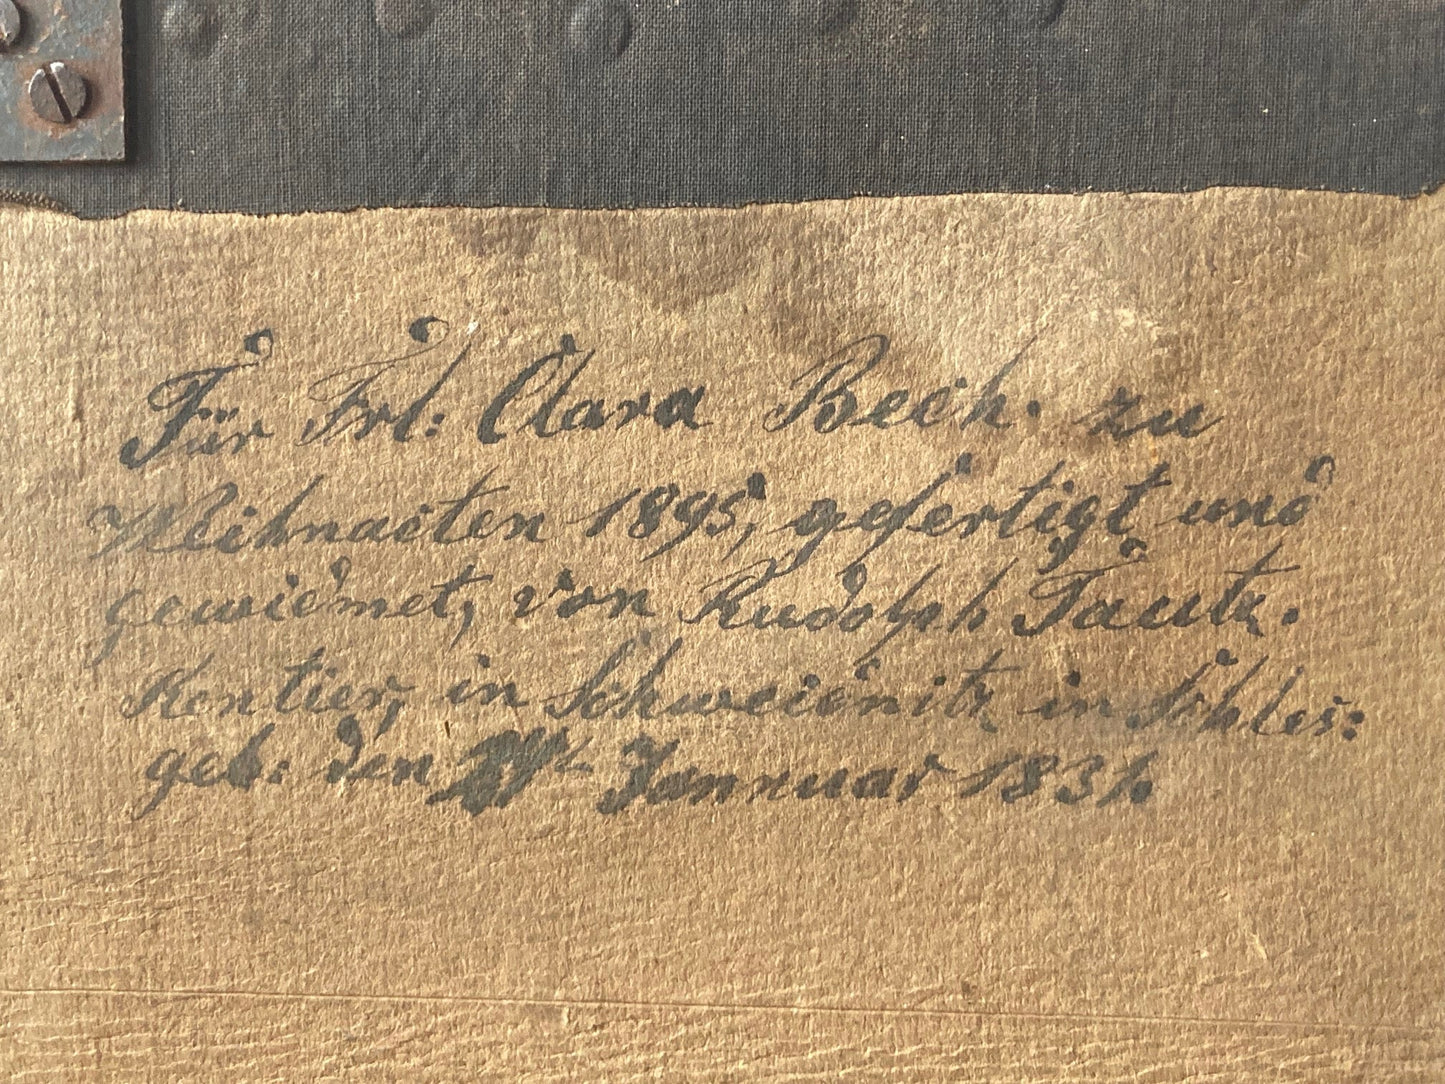 Für Frl: Clara Bech. zu
Weihnacten 1895, gefertigt und
gewidmet, von Rudolph Täutz.
Rentier, in Schweidnitz in Schles:
geb: den Januar 183